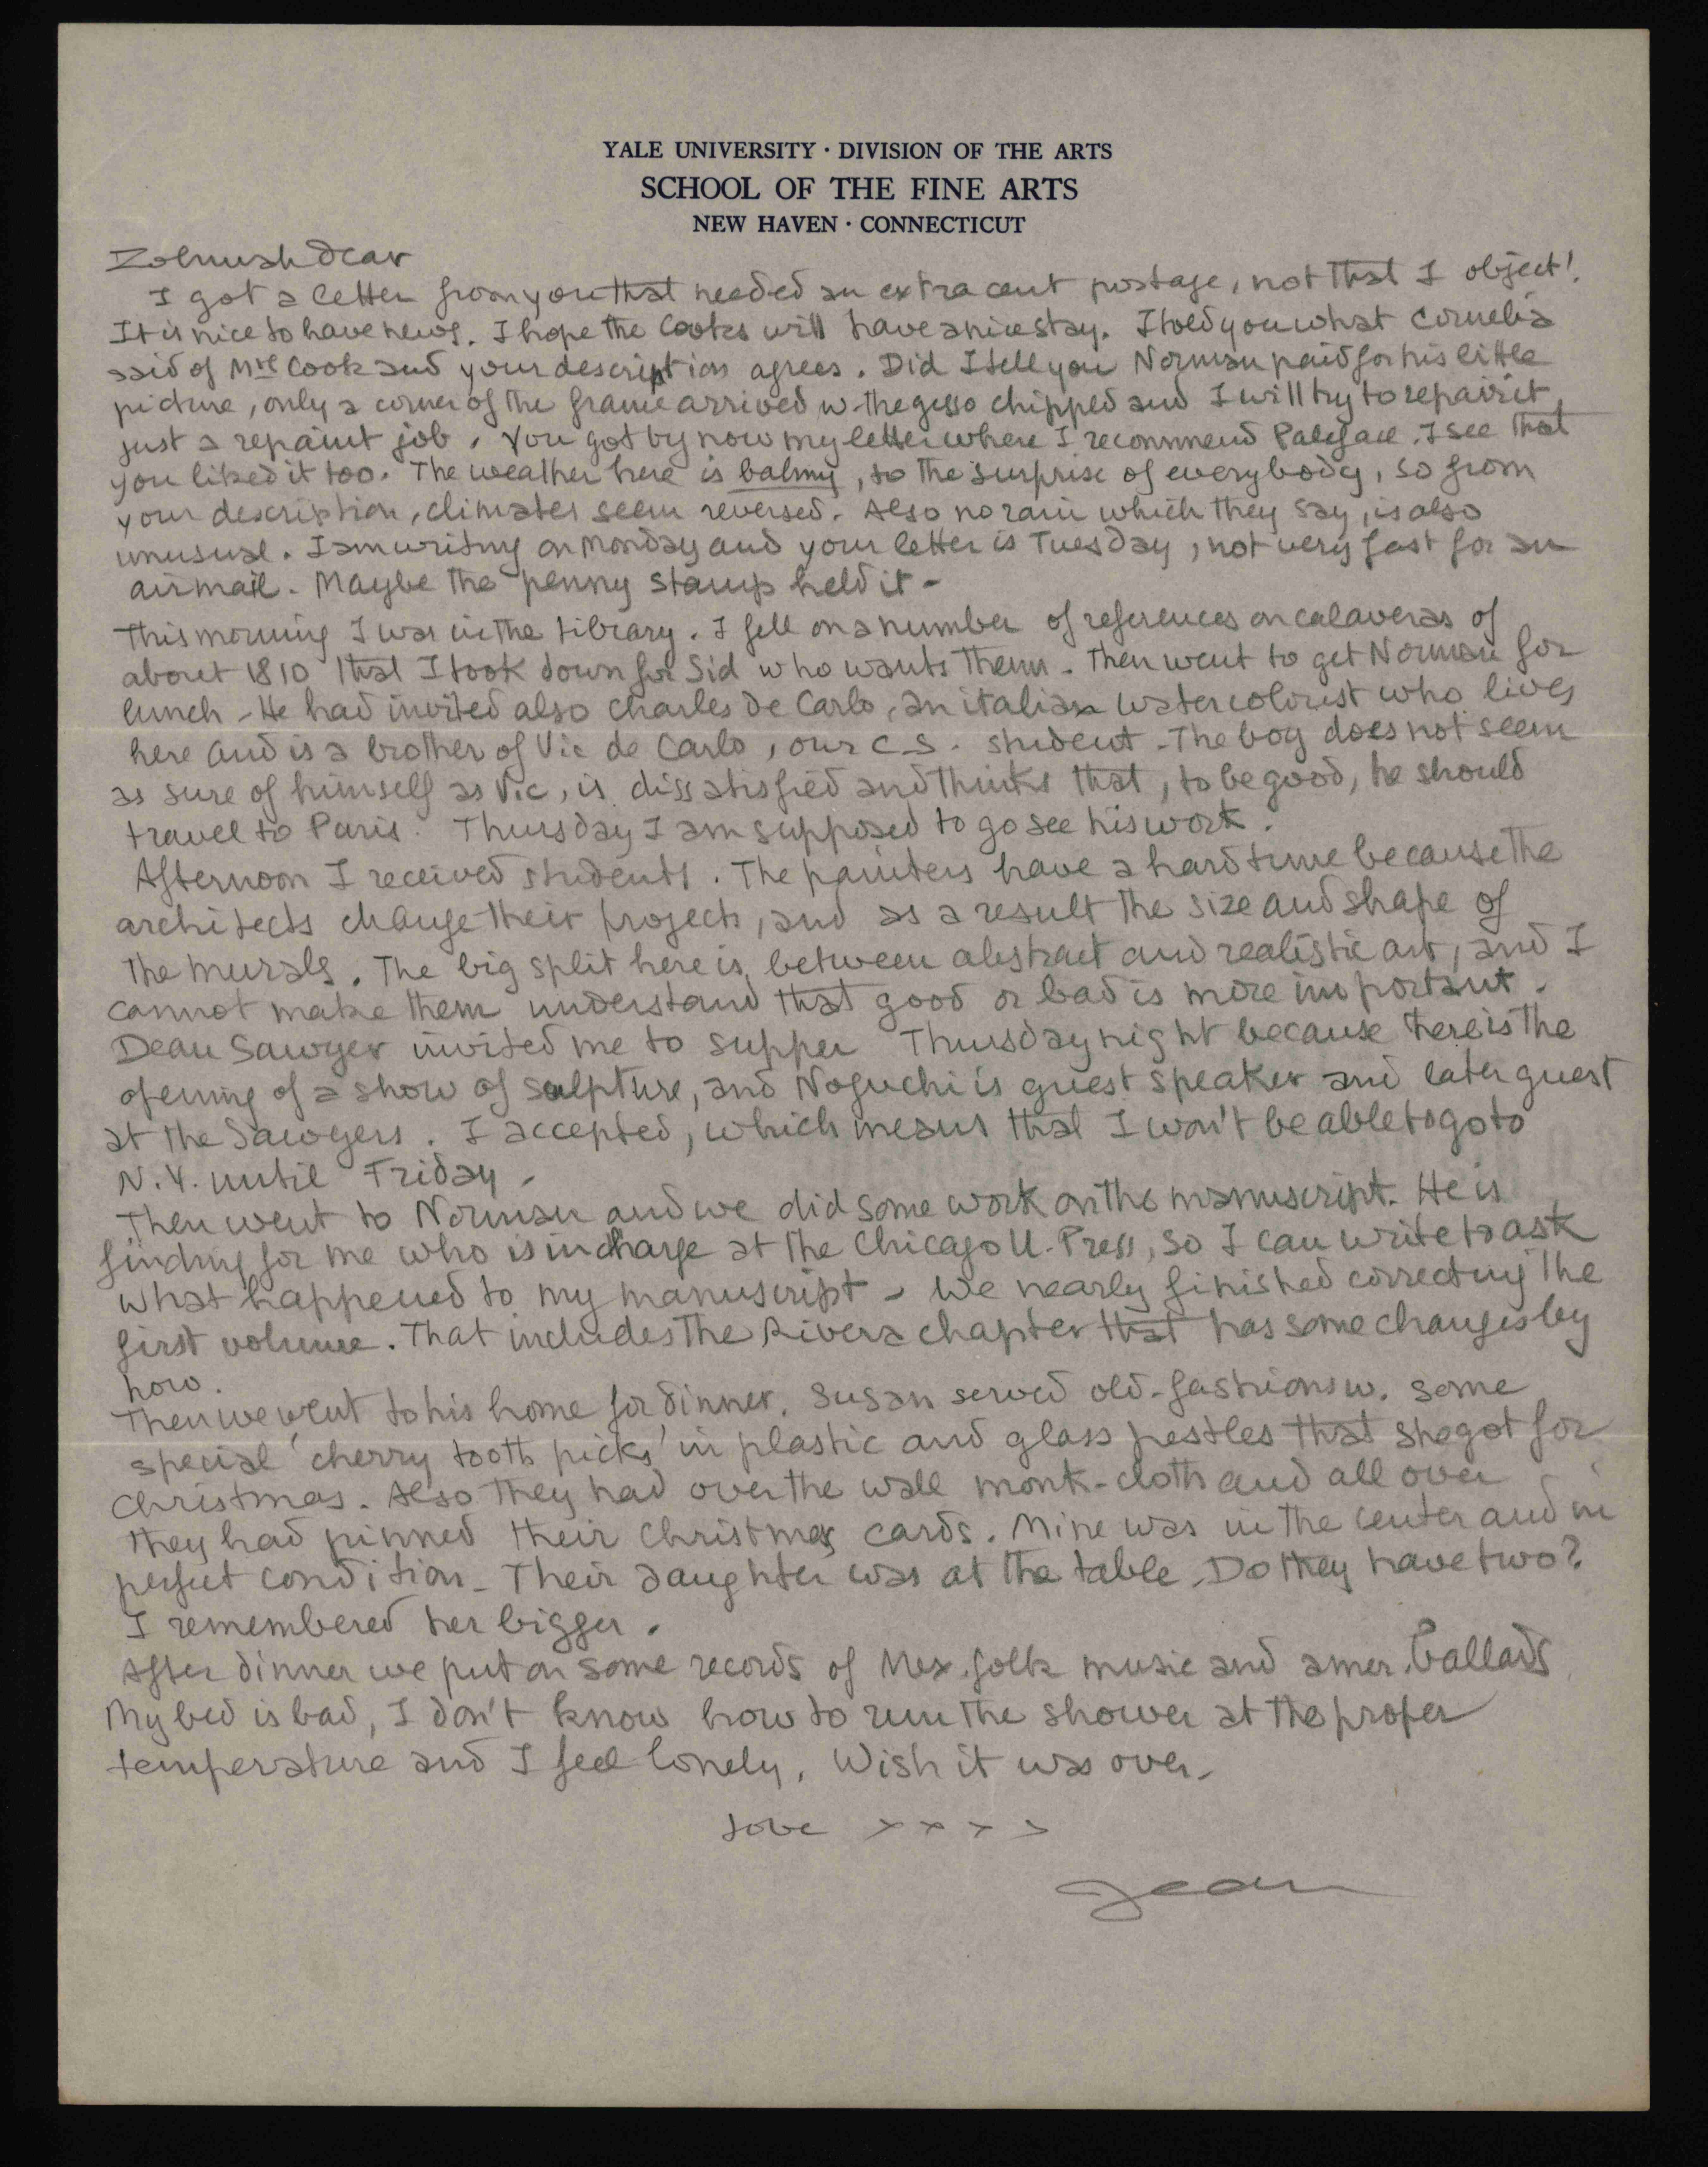 YALE UNIVERSITY · DIVISION OF THE ARTS
SCHOOL OF THE FINE ARTS
NEW HAVEN · CONNECTICUT
Zohmah dear
I got a letter from you that needed an extra cent postage, not that I object!
It is nice to have news. I hope the Cooks will have a nice stay. I told you what Cornelia
said of Mrs Cook and your description agrees. Did I tell you Norman paid for his little
picture, only a corner of the frame arrived w. the gesso chipped and I will try to repair it,
just a repaint job. You got by now my letter where I recommend Paleface. I see that
you liked it too. The weather here is balmy, to the surprise of everybody, so from
your description, climates seem reversed. Also no rain which they say, is also
unusual. I am writing on Monday and your letter is Tuesday, not very fast for an
airmail. Maybe the penny stamp held it -
This morning I was in the library. I fell on a number of references on calaveras of
about 1810 that I took down for Sid who wants them. Then went to get Norman for
lunch - He had invited also Charles de Carlo, an italian watercolorist who lives
here and is a brother of Vic de Carlo, our C.S. student - The boy does not seem
as sure of himself as Vic, is dissatisfied and thinks that, to be good, he should
travel to Paris. Thursday I am supposed to go see his work.
Afternoon I received students. The painters have a hard time because the
architects change their projects, and as a result the size and shape of
the murals. The big split here is between abstract and realistic art, and I
cannot make them understand that good or bad is more important.
Dean Sawyer invited me to supper Thursday night because there is the
opening of a show of sculpture, and Noguchi is guest speaker and later guest
at the Sawyers. I accepted, which means that I won't be able to go to
N.Y. until Friday.
Then went to Norman and we did some work on the manuscript. He is
finding for me who is in charge at the Chicago U. Press, so I can write to ask
what happened to my manuscript - We nearly finished correcting the
first volume. That includes the Rivera chapter that has some changes by
now.
Then we went to his home for dinner. Susan served old-fashions w. some
special 'cherry tooth picks' in plastic and glass pestles that she got for
Christmas. Also they had over the wall monk-cloth and all over
they had pinned their Christmas cards. Mine was in the center and in
perfect condition - Their daughter was at the table. Do they have two?
I remembered her bigger.
After dinner we put on some records of Mex. folk music and amer. ballads
My bed is bad, I don't know how to run the shower at the proper
temperature and I feel lonely. Wish it was over.
Love x x x x
Jean